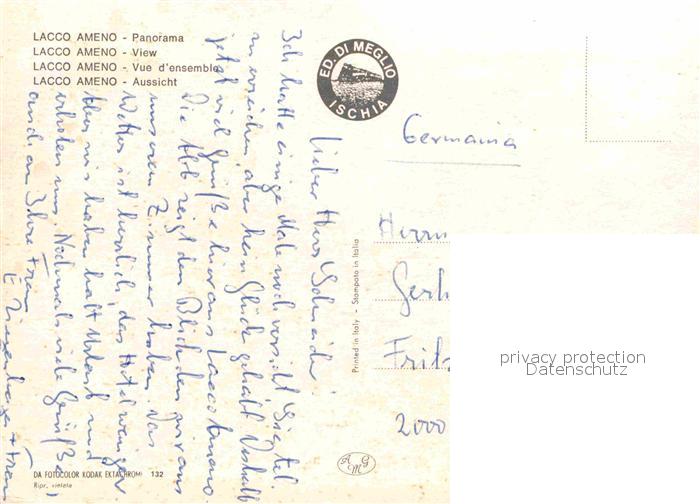 LACCO AMENO - Panorama
LACCO AMENO - View
LACCO AMENO - Vue d'ensemble
LACCO AMENO - Aussicht
ED. DI MEGLIO
ISCHIA
Lieber Herr Schneider!
Ich hatte einige Male noch versucht Sie tel.
zu erreichen, aber kein Glück gehabt. Deshalb
jetzt viel Grüße hier aus Lacco Ameno
Die Abb. zeigt den Blick den wir aus
unserem Zimmer haben. Das
Wetter ist herrlich, das Hotel weniger
Aber wir haben halt Urlaub und
erholen uns. Nochmals viele Grüße,
auch an Ihre Frau
Printed in Italy - Stampato in Italia
Germania
Herrn
Gerh
Fritz
2000
privacy protection
Datenschutz
DA FOTOCOLOR KODAK EKTACHROME 132
Ripr. vietata
AMG